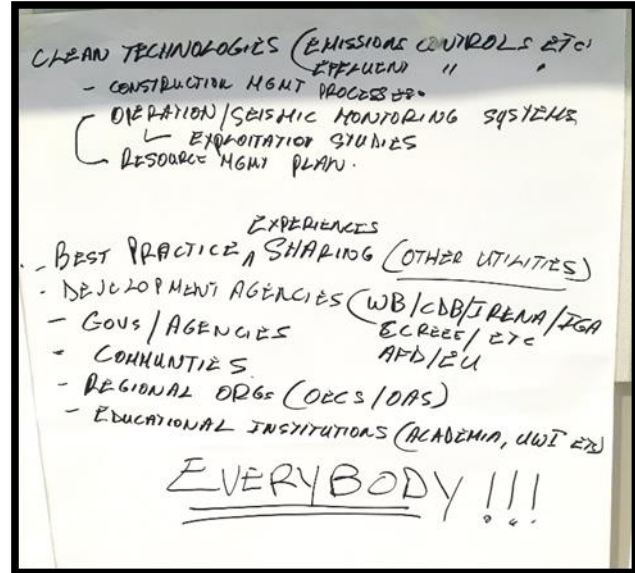 CLEAN TECHNOLOGIES (EMISSIONS CONTROLS ETC)
EFFLUENT " "
- CONSTRUCTION MGMT PROCESSES.
OPERATION/SEISMIC MONITORING SYSTEMS
EXPLOITATION STUDIES
RESOURCE MGMT PLAN.
EXPERIENCES
- BEST PRACTICE ^ SHARING (OTHER UTILITIES)
- DEVELOPMENT AGENCIES (WB/CDB/IRENA/IGA
ECREEE/ETC
AFD/EU
- GOVS/AGENCIES
- COMMUNTIES
- REGIONAL ORGS (OECS/OAS)
- EDUCATIONAL INSTITUTIONS (ACADEMIA, UWI ETC)
EVERYBODY!!!